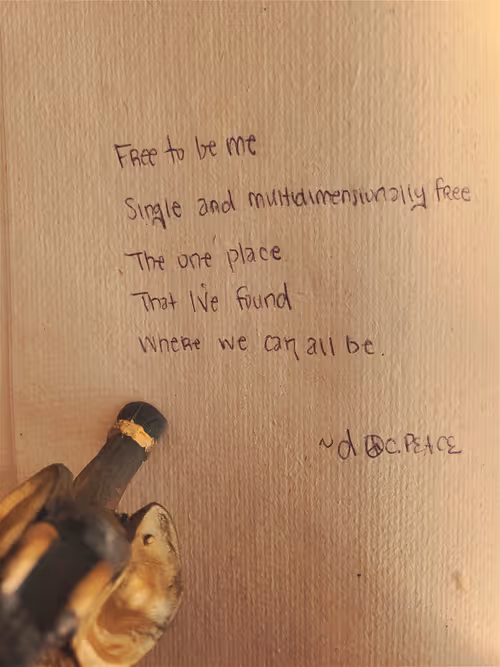 Free to be me
Single and multidimensionally free
The one place
That I've found
Where we can all be.
~d☮c.PEACE